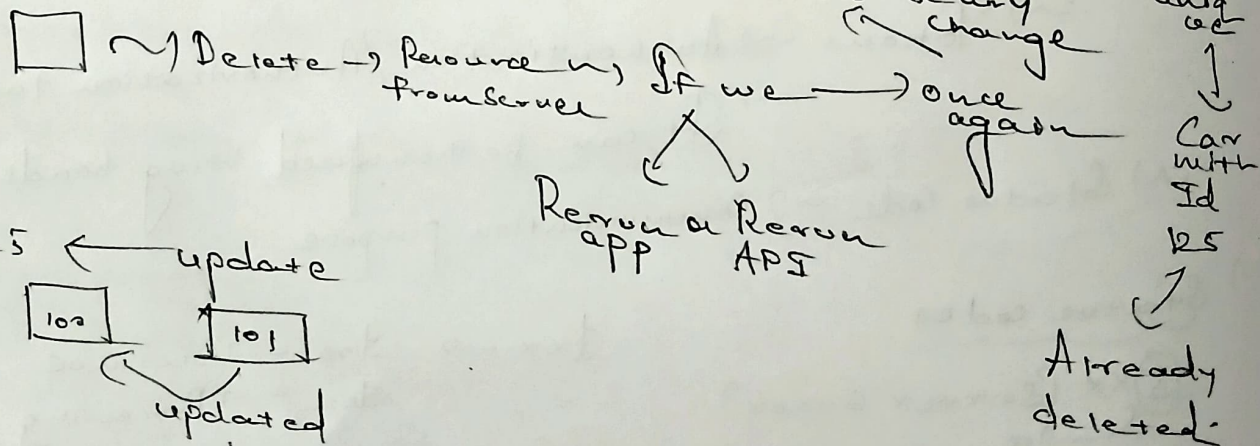 change
Delete → Resource
from Server
If we → once
again
Car
with
Id
125
Rerun or Rerun
app API
5 ← update
100 101
updated
Already
deleted.